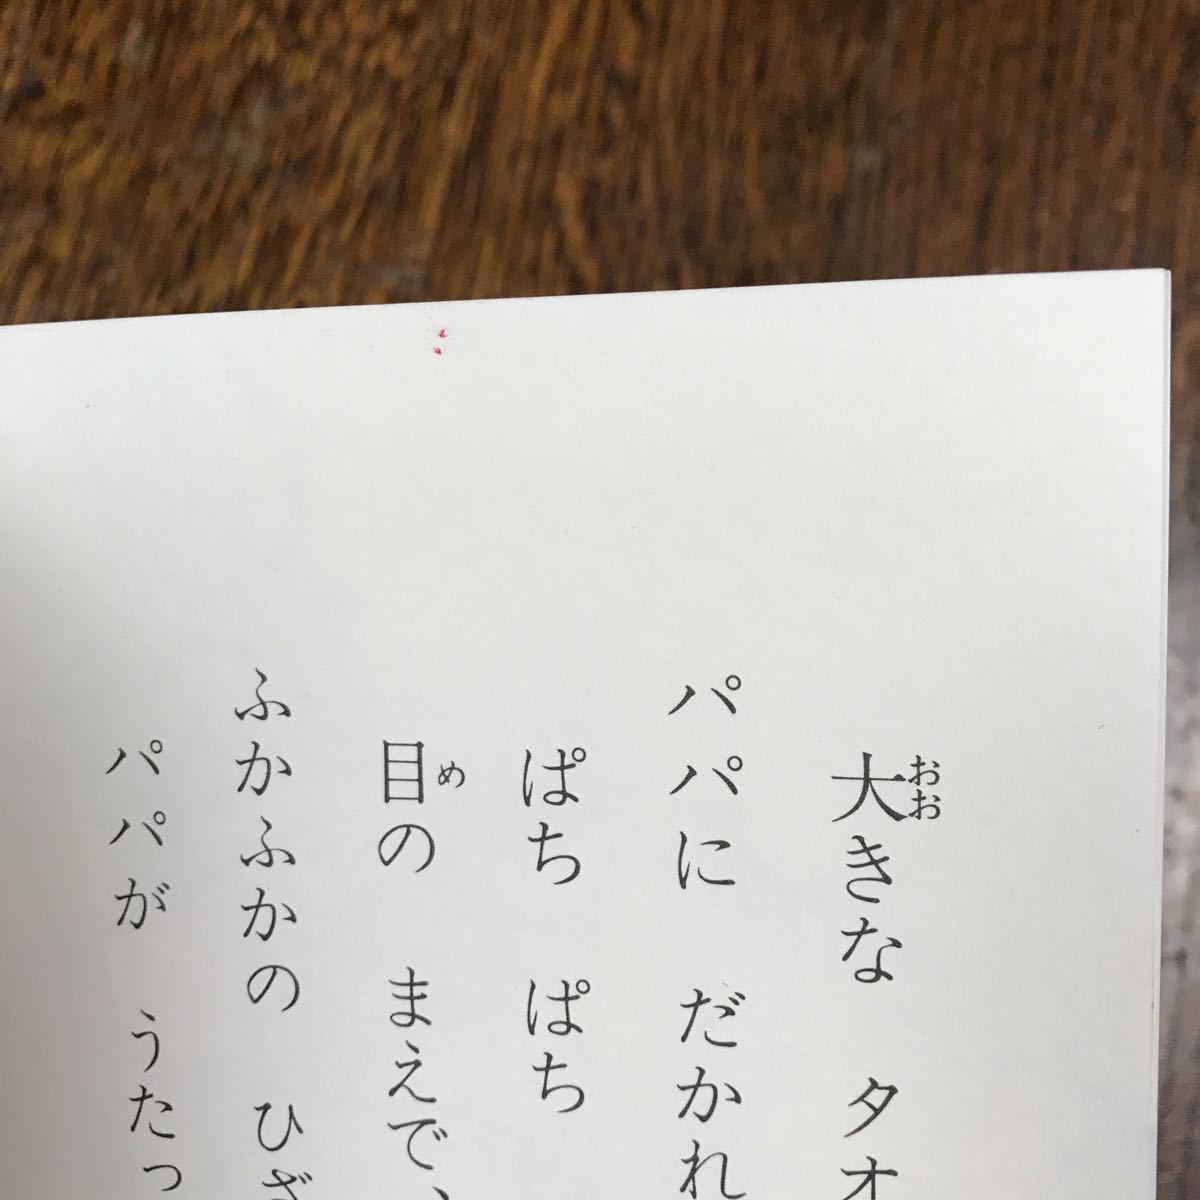 大きな タオ
パパに だかれ
ぱち ぱち
目の まえで、
ふかふかの ひざ
パパが うたっ
おお
め